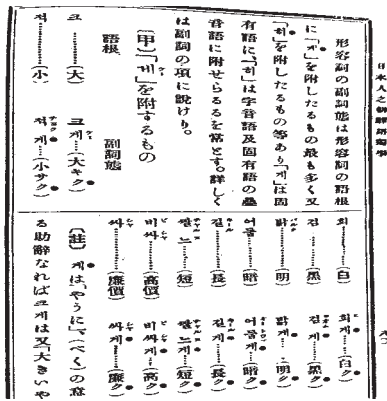 形容詞の副詞態は形容詞の語根
に「게」を附したるもの最も多く又
「히」を附したるもの等あり「게」は固
有語に、「히」は字音語及固有語の疊
音語に附せらるるを常とす。詳しく
は副詞の項に説けり。
〔甲〕「게」を附するもの
語根 副詞態
크………(大) 크게…(大キク)
적………(小) 적게…(小サク)
희………(白) 희게…(白ク)
검………(黑) 검게…(黑ク)
밝………(明) 밝게…(明ク)
어둡………(暗) 어둡게…(暗ク)
길………(長) 길게…(長ク)
짧………(短) 짧게…(短ク)
비싸………(高價) 비싸게…(高ク)
싸………(廉價) 싸게…(廉ク)
〔註〕 게は「やうに」「(べく)の意
る助辭なれば크게は又「大きいや